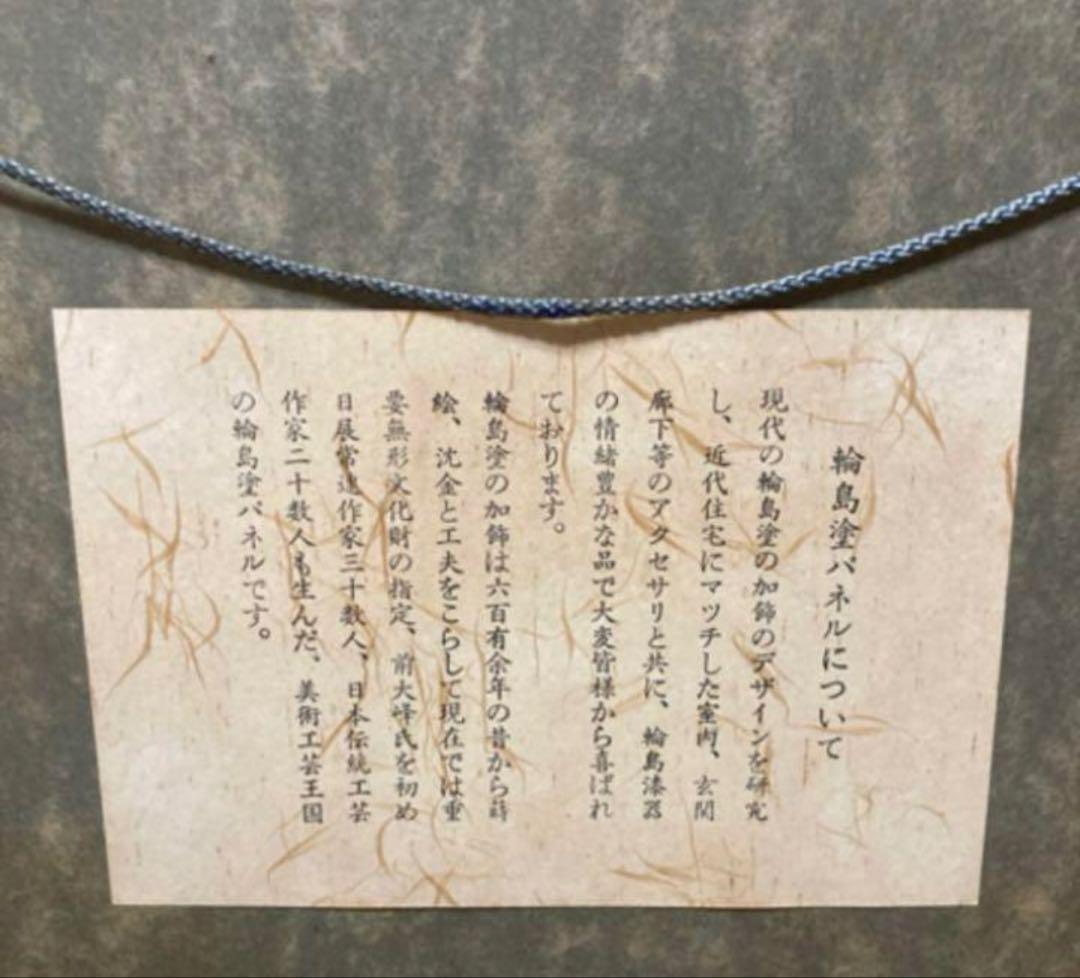 輪島塗パネルについて
現代の輪島塗の加飾のデザインを研究
し、近代住宅にマッチした室内、玄関
廊下等のアクセサリと共に、輪島漆器
の情緒豊かな品で大変皆様から喜ばれ
ております。
輪島塗の加飾は六百有余年の昔から蒔
絵、沈金と工夫をこらして現在では重
要無形文化財の指定、前大峰氏を初め
日展常連作家三十数人、日本伝統工芸
作家二十数人も生んだ、美術工芸王国
の輪島塗パネルです。